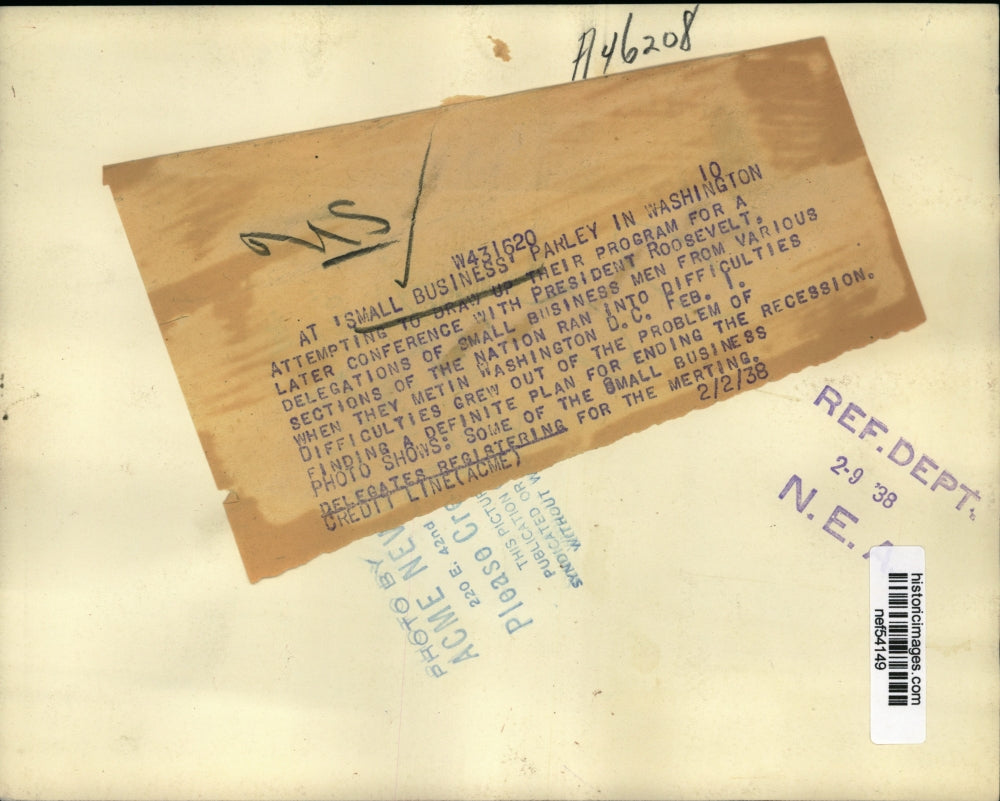 A46208
MS
10
W431620
AT 'SMALL BUSINESS' PARLEY IN WASHINGTON
ATTEMPTING TO DRAW UP THEIR PROGRAM FOR A
LATER CONFERENCE WITH PRESIDENT ROOSEVELT,
DELEGATIONS OF SMALL BUSINESS MEN FROM VARIOUS
SECTIONS OF THE NATION RAN INTO DIFFICULTIES
WHEN THEY METIN WASHINGTON D.C. FEB. 1.
DIFFICULTIES GREW OUT OF THE PROBLEM OF
FINDING A DEFINITE PLAN FOR ENDING THE RECESSION.
PHOTO SHOWS: SOME OF THE SMALL BUSINESS
DELEGATES REGISTERING FOR THE MERTING.
CREDIT LINE(ACME) 2/2/38
PHOTO BY
ACME NEW
220 E. 42nd
Please Cre
THIS PICTUR
PUBLICATION
SYNDICATED OR
WITHOUT W
REF.DEPT.
2-9 '38
N.E.A
historicimages.com
nef54149